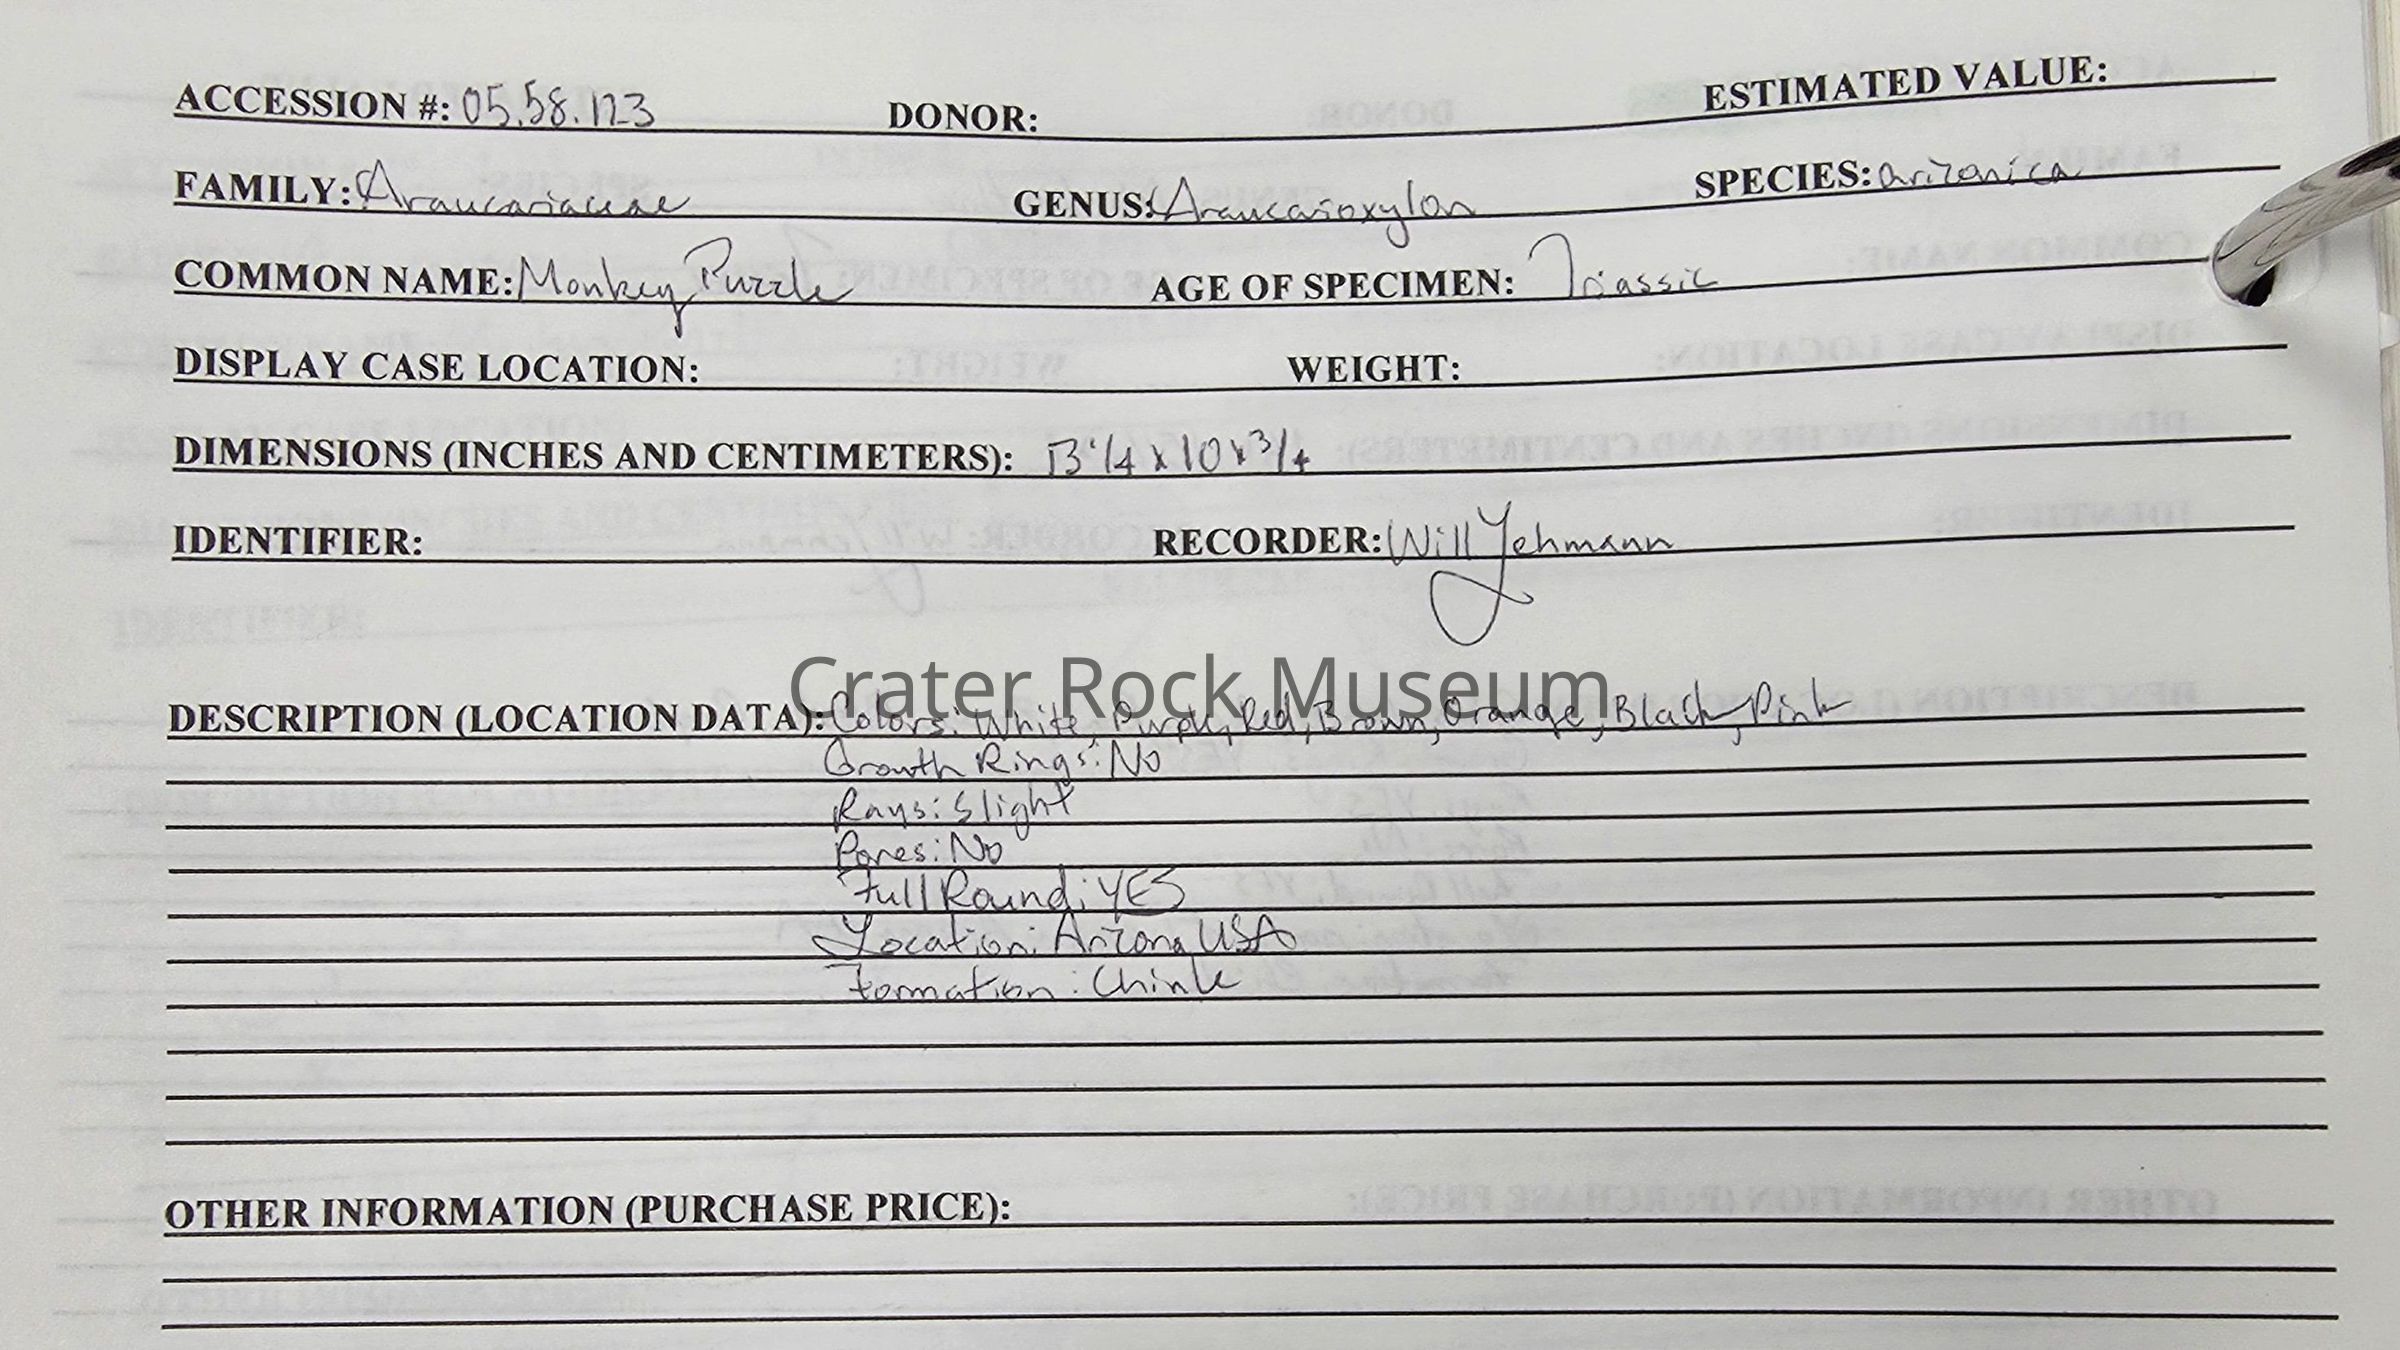 ACCESSION #: 05.58.123 DONOR: ESTIMATED VALUE:
FAMILY: Araucariaceae GENUS: Araucarioxylon SPECIES: arizonica
COMMON NAME: Monkey Puzzle AGE OF SPECIMEN: Triassic
DISPLAY CASE LOCATION: WEIGHT:
DIMENSIONS (INCHES AND CENTIMETERS): 13 1/4 x 10 x 3/4
IDENTIFIER: RECORDER: Will Yehmann
Crater Rock Museum
DESCRIPTION (LOCATION DATA): Colors: White, Purple, Red, Brown, Orange, Black, Pink
Growth Rings: No
Rays: Slight
Pores: No
Full Round: YES
Location: Arizona, USA
Formation: Chinle
OTHER INFORMATION (PURCHASE PRICE):